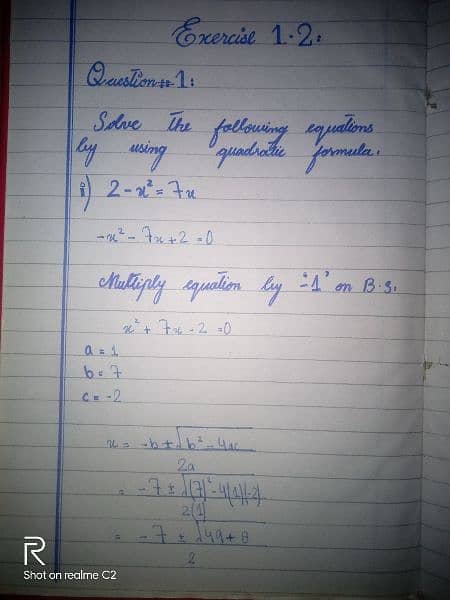 Exercise 1.2:
Question#1:
Solve the following equations
by using quadratic formula.
i) 2-x²=7x
-x²-7x+2=0
Multiply equation by "-1" on B.S.
x²+7x-2=0
a=1
b=7
c=-2
x = -b±√b²-4ac
2a
= -7±√(7)²-4(1)(-2)
2(1)
= -7±√49+8
2
R
Shot on realme C2